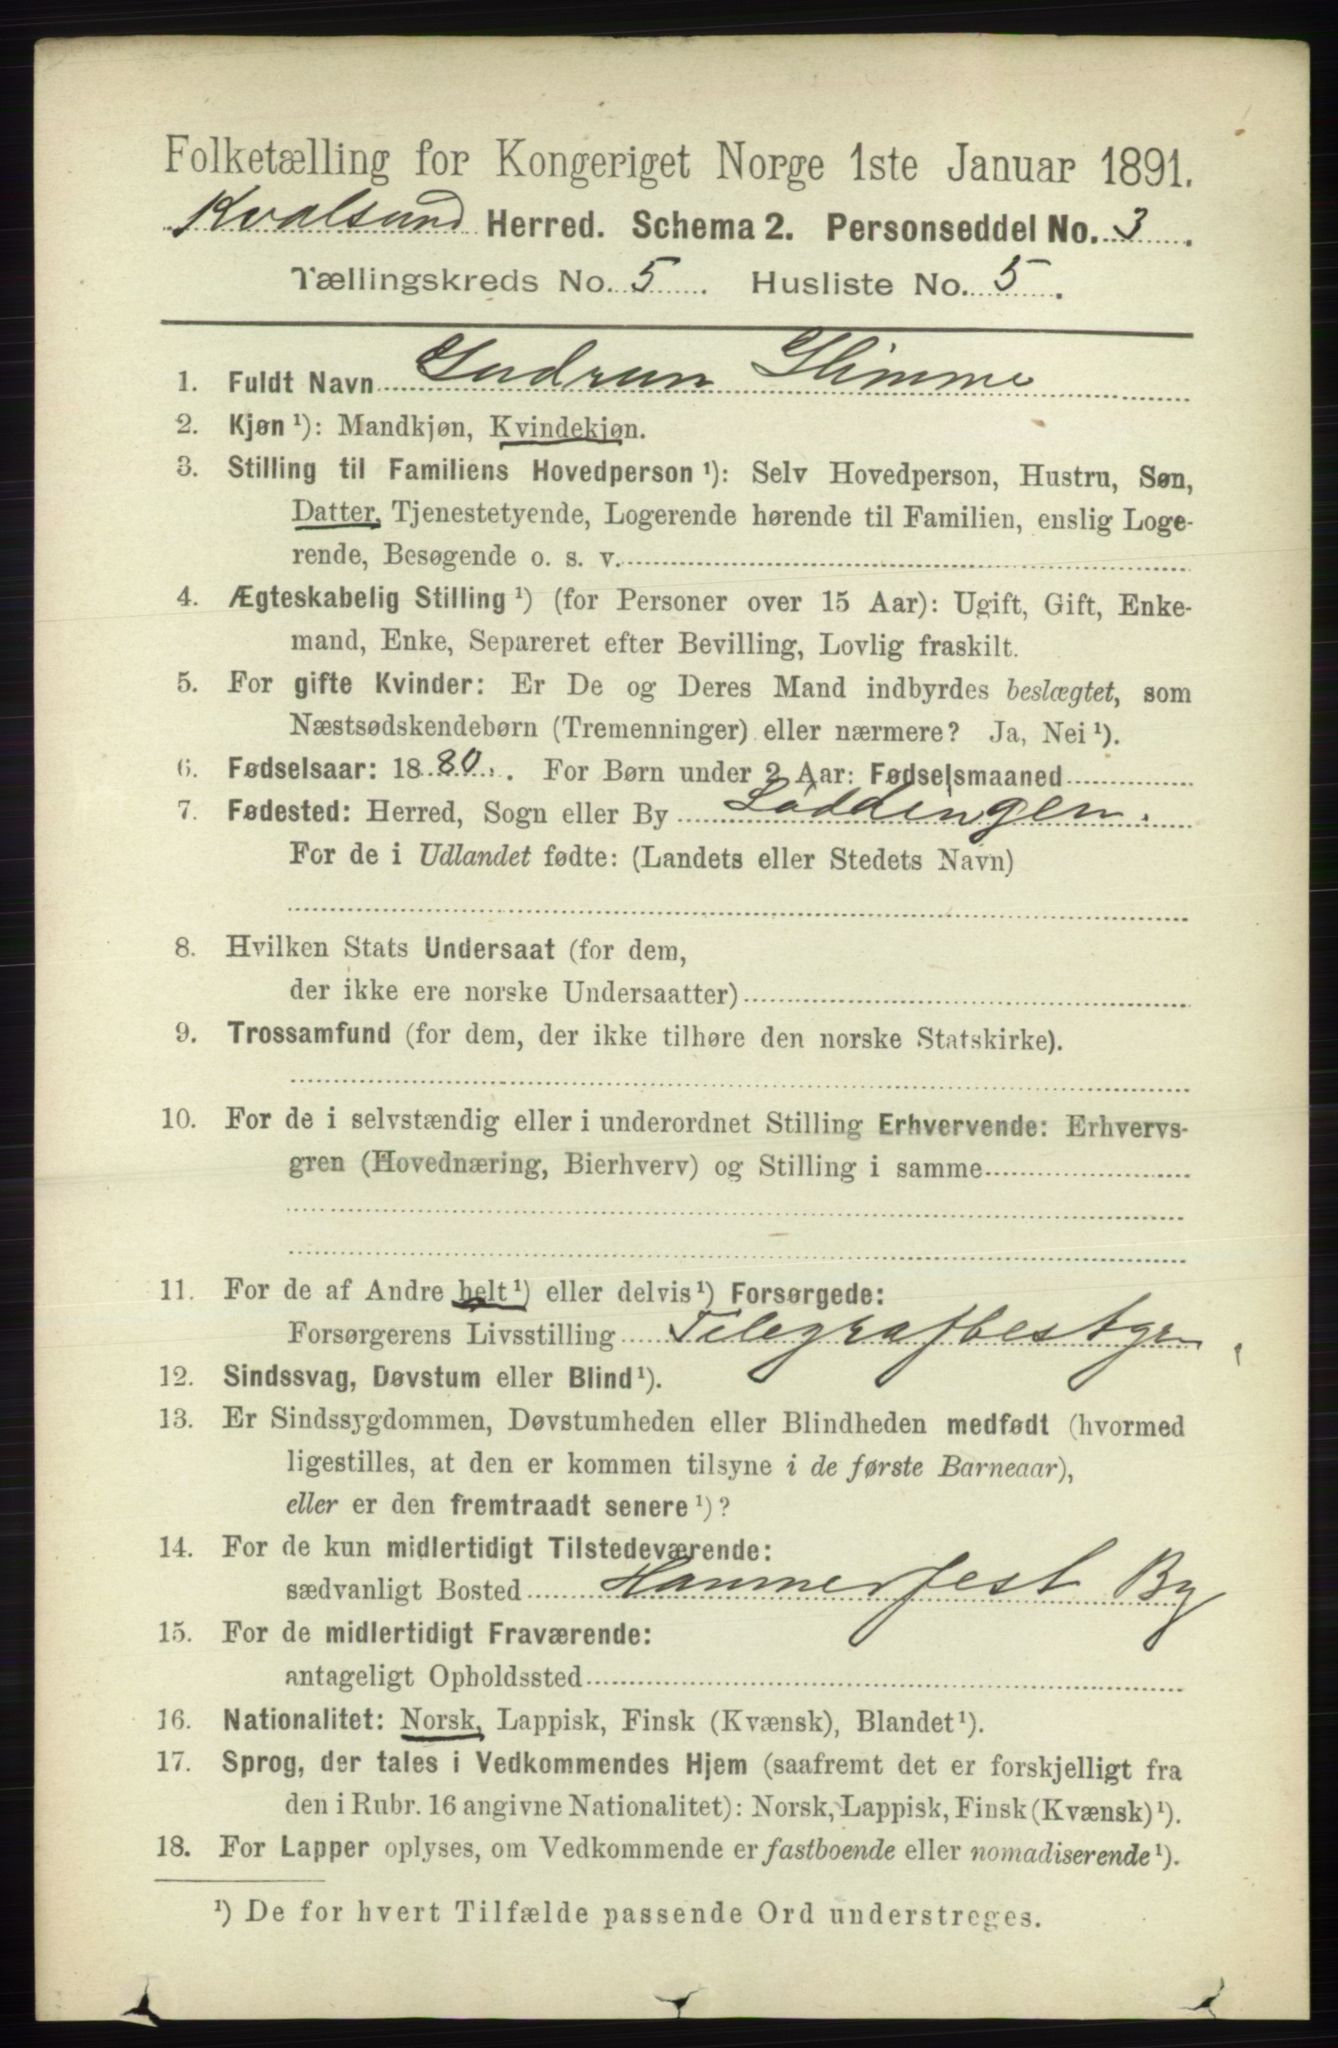 Folketælling for Kongeriget Norge 1ste Januar 1891.
Kvalsund Herred. Schema 2. Personseddel No. 3.
Tællingskreds No. 5. Husliste No. 5.
1. Fuldt Navn Gudrun
2. Kjøn ¹): Mandkjøn, Kvindekjøn.
3. Stilling til Familiens Hovedperson ¹): Selv Hovedperson, Hustru, Søn,
Datter, Tjenestetyende, Logerende hørende til Familien, enslig Loge-
rende, Besøgende o. s. v.
4. Ægteskabelig Stilling ¹) (for Personer over 15 Aar): Ugift, Gift, Enke-
mand, Enke, Separeret efter Bevilling, Lovlig fraskilt.
5. For gifte Kvinder: Er De og Deres Mand indbyrdes beslægtet, som
Næstsødskendebørn (Tremenninger) eller nærmere? Ja, Nei ¹).
6. Fødselsaar: 1880. For Børn under 2 Aar: Fødselsmaaned
7. Fødested: Herred, Sogn eller By Løddingen.
For de i Udlandet fødte: (Landets eller Stedets Navn)
8. Hvilken Stats Undersaat (for dem,
der ikke ere norske Undersaatter)
9. Trossamfund (for dem, der ikke tilhøre den norske Statskirke).
10. For de i selvstændig eller i underordnet Stilling Erhvervende: Erhvervs-
gren (Hovednæring, Bierhverv) og Stilling i samme
11. For de af Andre helt ¹) eller delvis ¹) Forsørgede:
Forsørgerens Livsstilling Telegrafbestyrer
12. Sindssvag, Døvstum eller Blind ¹).
13. Er Sindssygdommen, Døvstumheden eller Blindheden medfødt (hvormed
ligestilles, at den er kommen tilsyne i de første Barneaar),
eller er den fremtraadt senere ¹)?
14. For de kun midlertidigt Tilstedeværende:
sædvanligt Bosted Hammerfest By
15. For de midlertidigt Fraværende:
antageligt Opholdssted
16. Nationalitet: Norsk, Lappisk, Finsk (Kvænsk), Blandet ¹).
17. Sprog, der tales i Vedkommendes Hjem (saafremt det er forskjelligt fra
den i Rubr. 16 angivne Nationalitet): Norsk, Lappisk, Finsk (Kvænsk) ¹).
18. For Lapper oplyses, om Vedkommende er fastboende eller nomadiserende ¹).
¹) De for hvert Tilfælde passende Ord understreges.